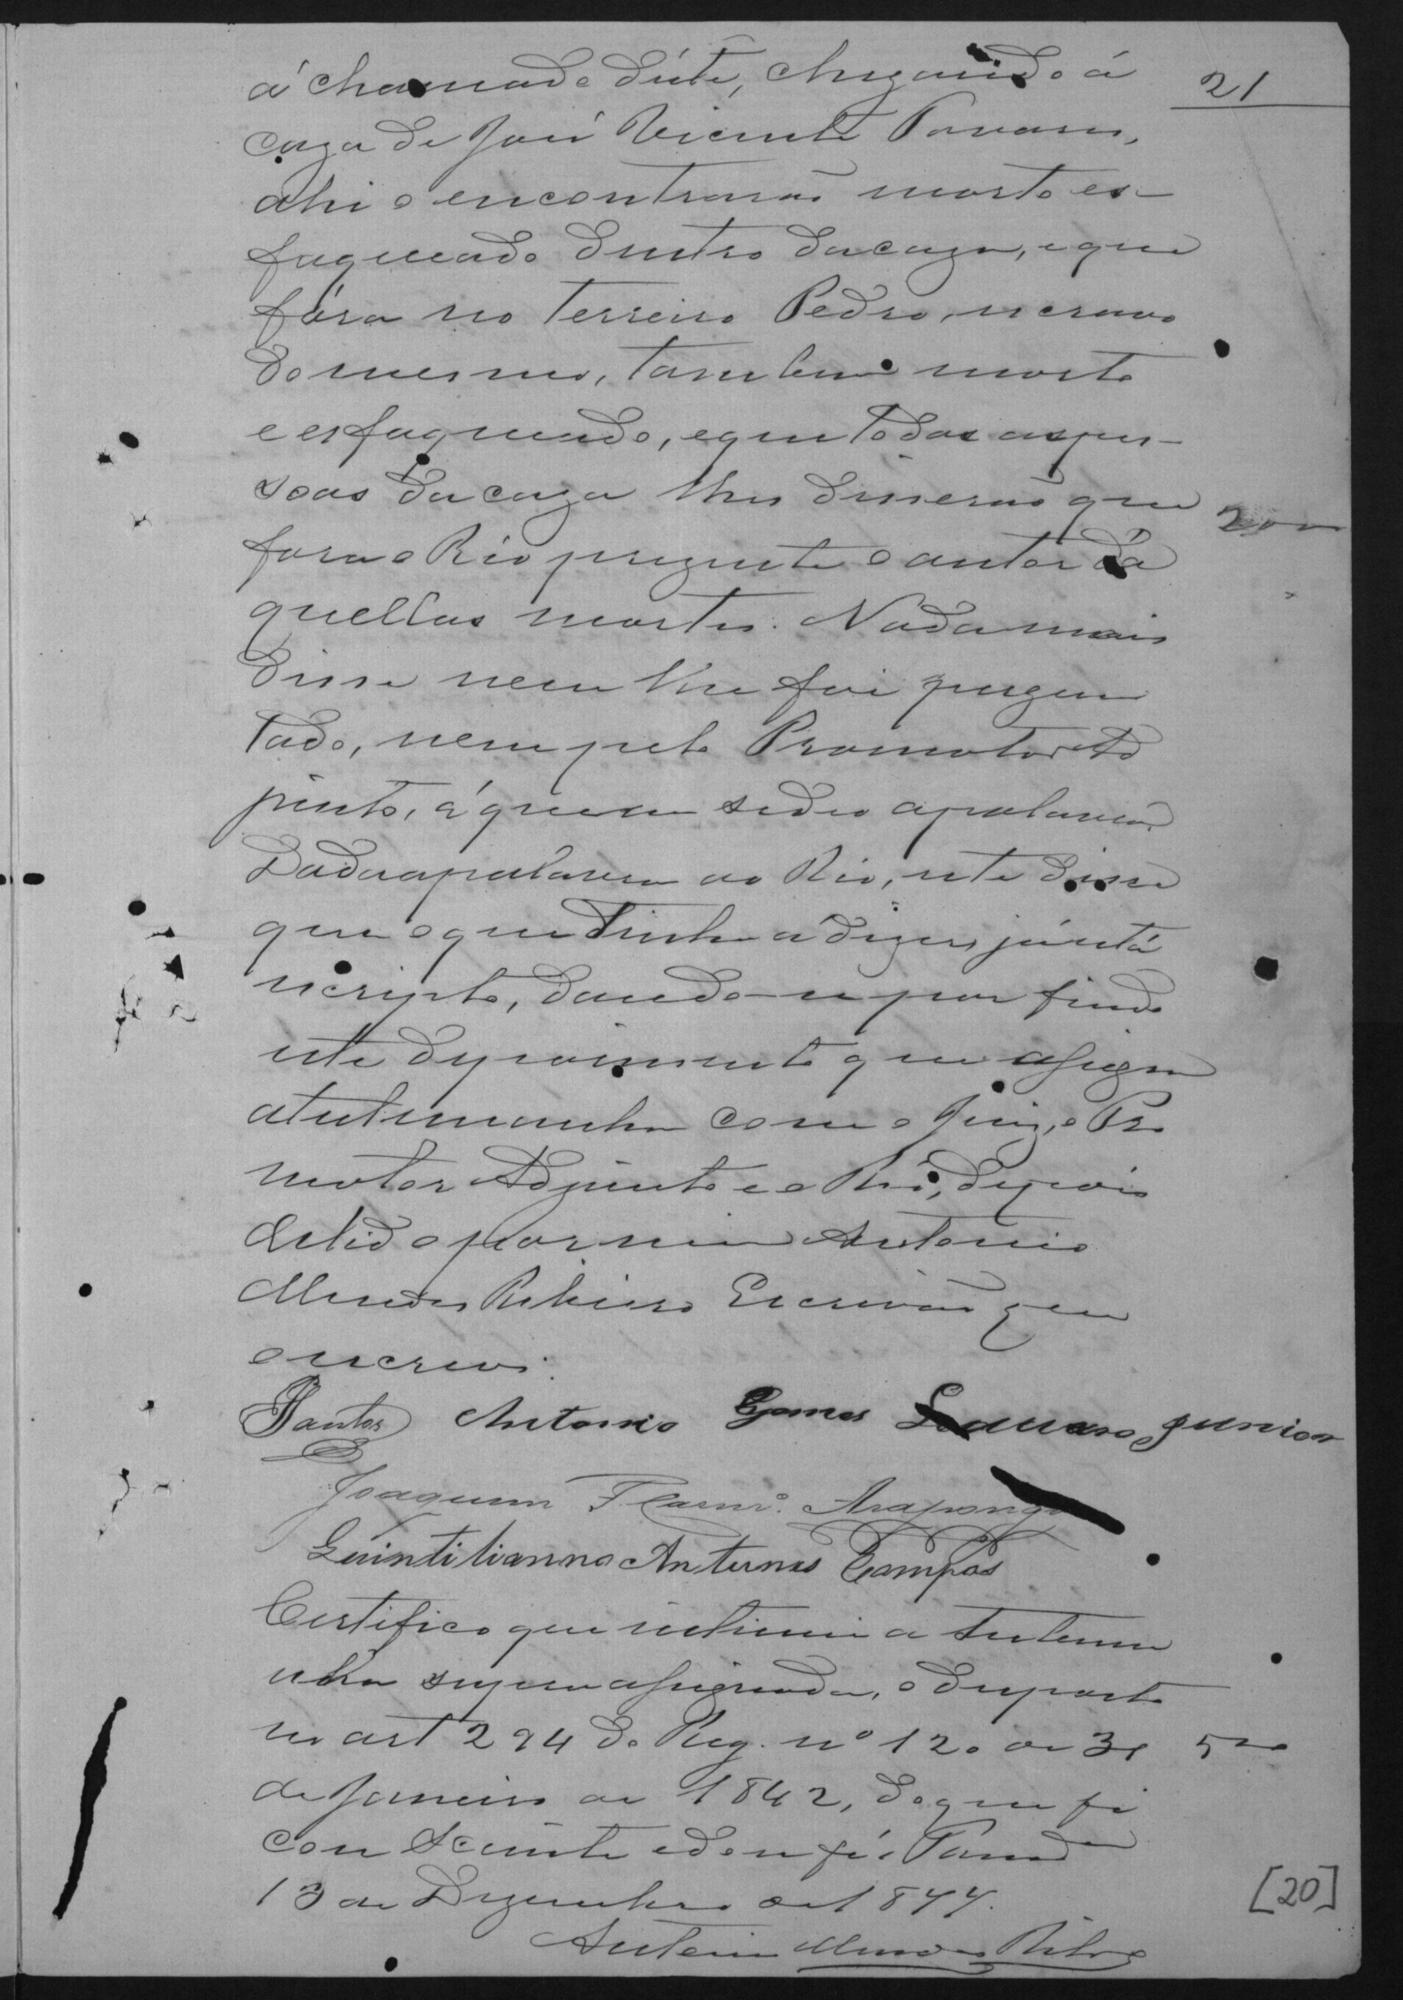 21
á chamado d'este, chegando á
caza de José Vicente Tavares,
ahi o encontrarão morto es-
faqueado dentro da caza, e que
fóra no terreiro Pedro, escravo
do mesmo, tambem morto
e esfaqueado, e que todas as pes-
soas da caza lhes disserão que
fora o Réo prezente o autor da
quellas mortes. Nada mais
disse nem lhe foi pergun
tado, nem pelo Promotor Ad
junto, á quem se deo a palavra.
Dada a palavra ao Réo, este disse
que o que tinha á dizer já está
escripto, dando-se por findo
este depoimento que assigna
a testemunha com o Juiz, o Pro
motor Adjunto e o Réo, depois
de lido por mim Antonio
Mendes Ribeiro Escrivão que
o escrevi.
Santos Antonio Gomes Junior
Joaquim Araponga
Quintilianno Antunes Campos
Certifico que intimei a testemu
nha supra assignada, o disposto
no art 294 do Reg. nº 120 de 31
de Janeiro de 1842, do que fi
cou sciente e dou fé.
13 de Dezembro de 1877.
Antonio Mendes Ribro
[20]